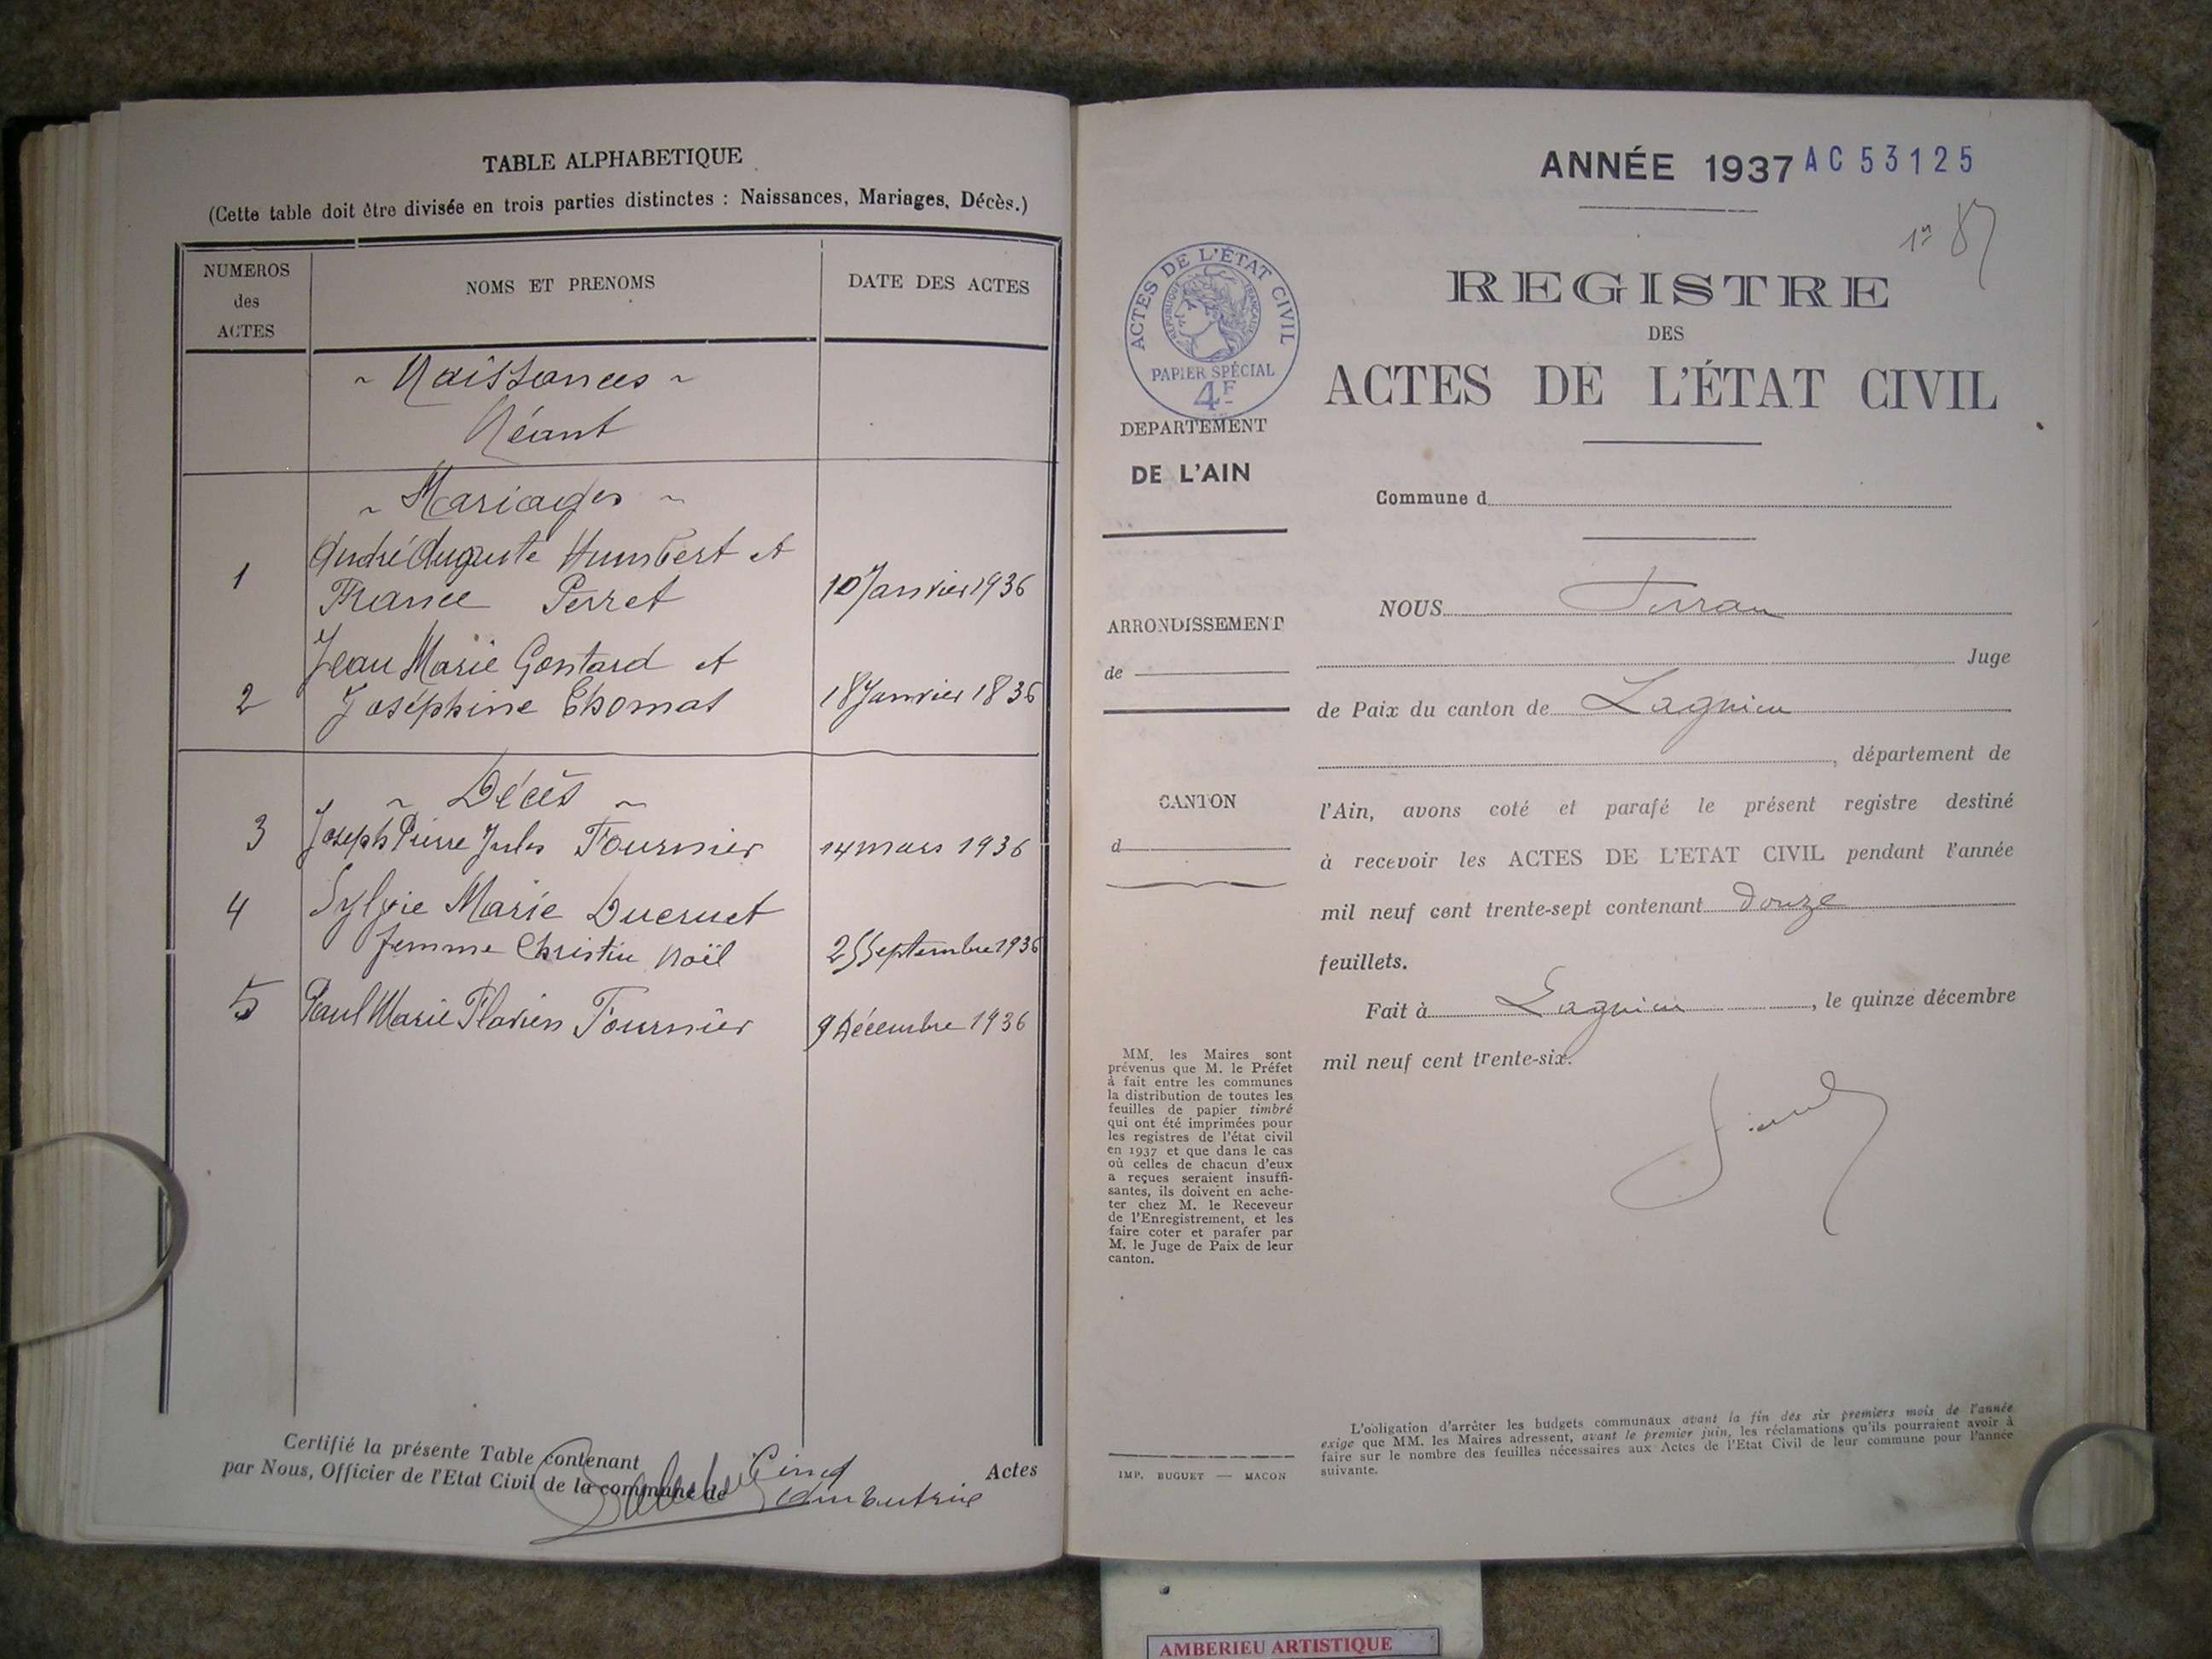 TABLE ALPHABETIQUE
(Cette table doit être divisée en trois parties distinctes : Naissances, Mariages, Décès.)
NUMEROS
des
ACTES
NOMS ET PRENOMS
DATE DES ACTES
~ Naissances ~
Néant
~ Mariages ~
1 André Auguste Humbert et
France Perret 10 Janvier 1936
Jean Marie Gontard et
2 Joséphine Thomas 18 Janvier 1836
~ Décès ~
3 Joseph Pierre Jules Fournier 14 mars 1936
4 Sylvie Marie Ducruet
femme Christin Noël 25 Septembre 1936
5 Paul Marie Flavien Fournier 9 Décembre 1936
Certifié la présente Table contenant Cinq Actes
par Nous, Officier de l'Etat Civil de la commune de Ambutrix
ANNÉE 1937 AC 53125
REGISTRE
DES
ACTES DE L'ÉTAT CIVIL
ACTES DE L'ÉTAT CIVIL
RÉPUBLIQUE FRANÇAISE
PAPIER SPÉCIAL
4F
DEPARTEMENT
DE L'AIN
ARRONDISSEMENT
de
CANTON
d
MM. les Maires sont
prévenus que M. le Préfet
à fait entre les communes
la distribution de toutes les
feuilles de papier timbré
qui ont été imprimées pour
les registres de l'état civil
en 1937 et que dans le cas
où celles de chacun d'eux
a reçues seraient insuffi-
santes, ils doivent en ache-
ter chez M. le Receveur
de l'Enregistrement, et les
faire coter et parafer par
M. le Juge de Paix de leur
canton.
IMP. BUGUET — MACON
Commune d
NOUS
Juge
de Paix du canton de Lagnieu
, département de
l'Ain, avons coté et parafé le présent registre destiné
à recevoir les ACTES DE L'ETAT CIVIL pendant l'année
mil neuf cent trente-sept contenant douze
feuillets.
Fait à Lagnieu, le quinze décembre
mil neuf cent trente-six.
L'obligation d'arrêter les budgets communaux avant la fin des six premiers mois de l'année
exige que MM. les Maires adressent, avant le premier juin, les réclamations qu'ils pourraient avoir à
faire sur le nombre des feuilles nécessaires aux Actes de l'Etat Civil de leur commune pour l'année
suivante.
AMBERIEU ARTISTIQUE